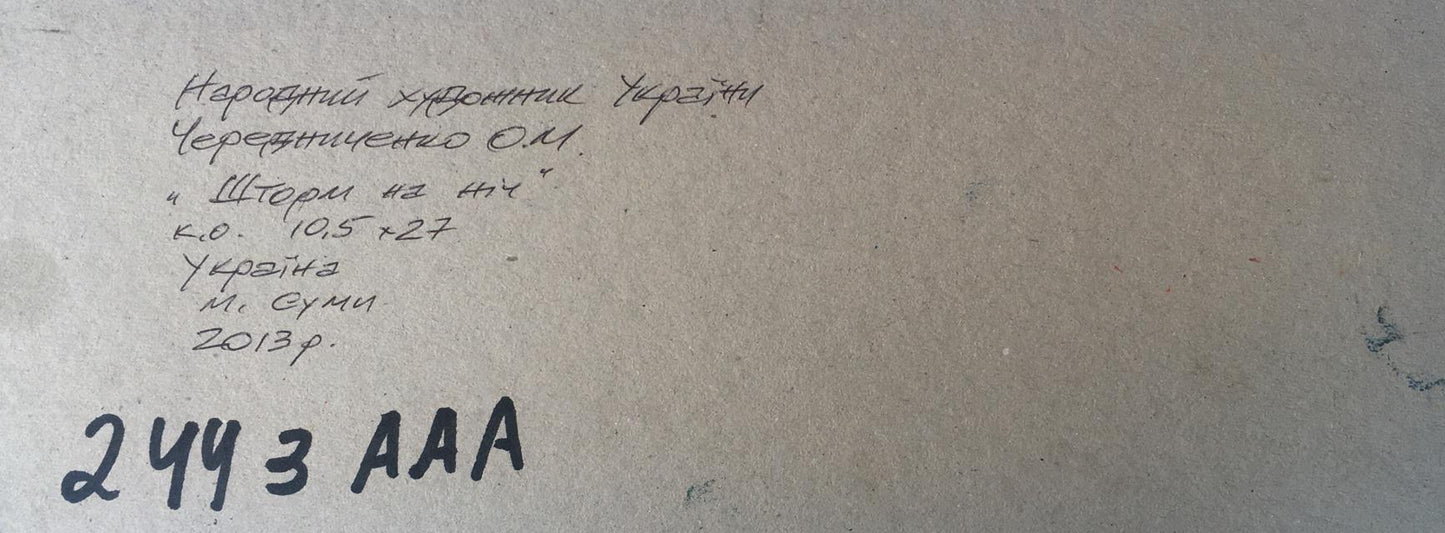 Народний художник України
Чередниченко О.М.
„ Шторм на ніч "
к.о. 10,5 x 27
Україна
м. Суми
2013 р.
2443 AAA